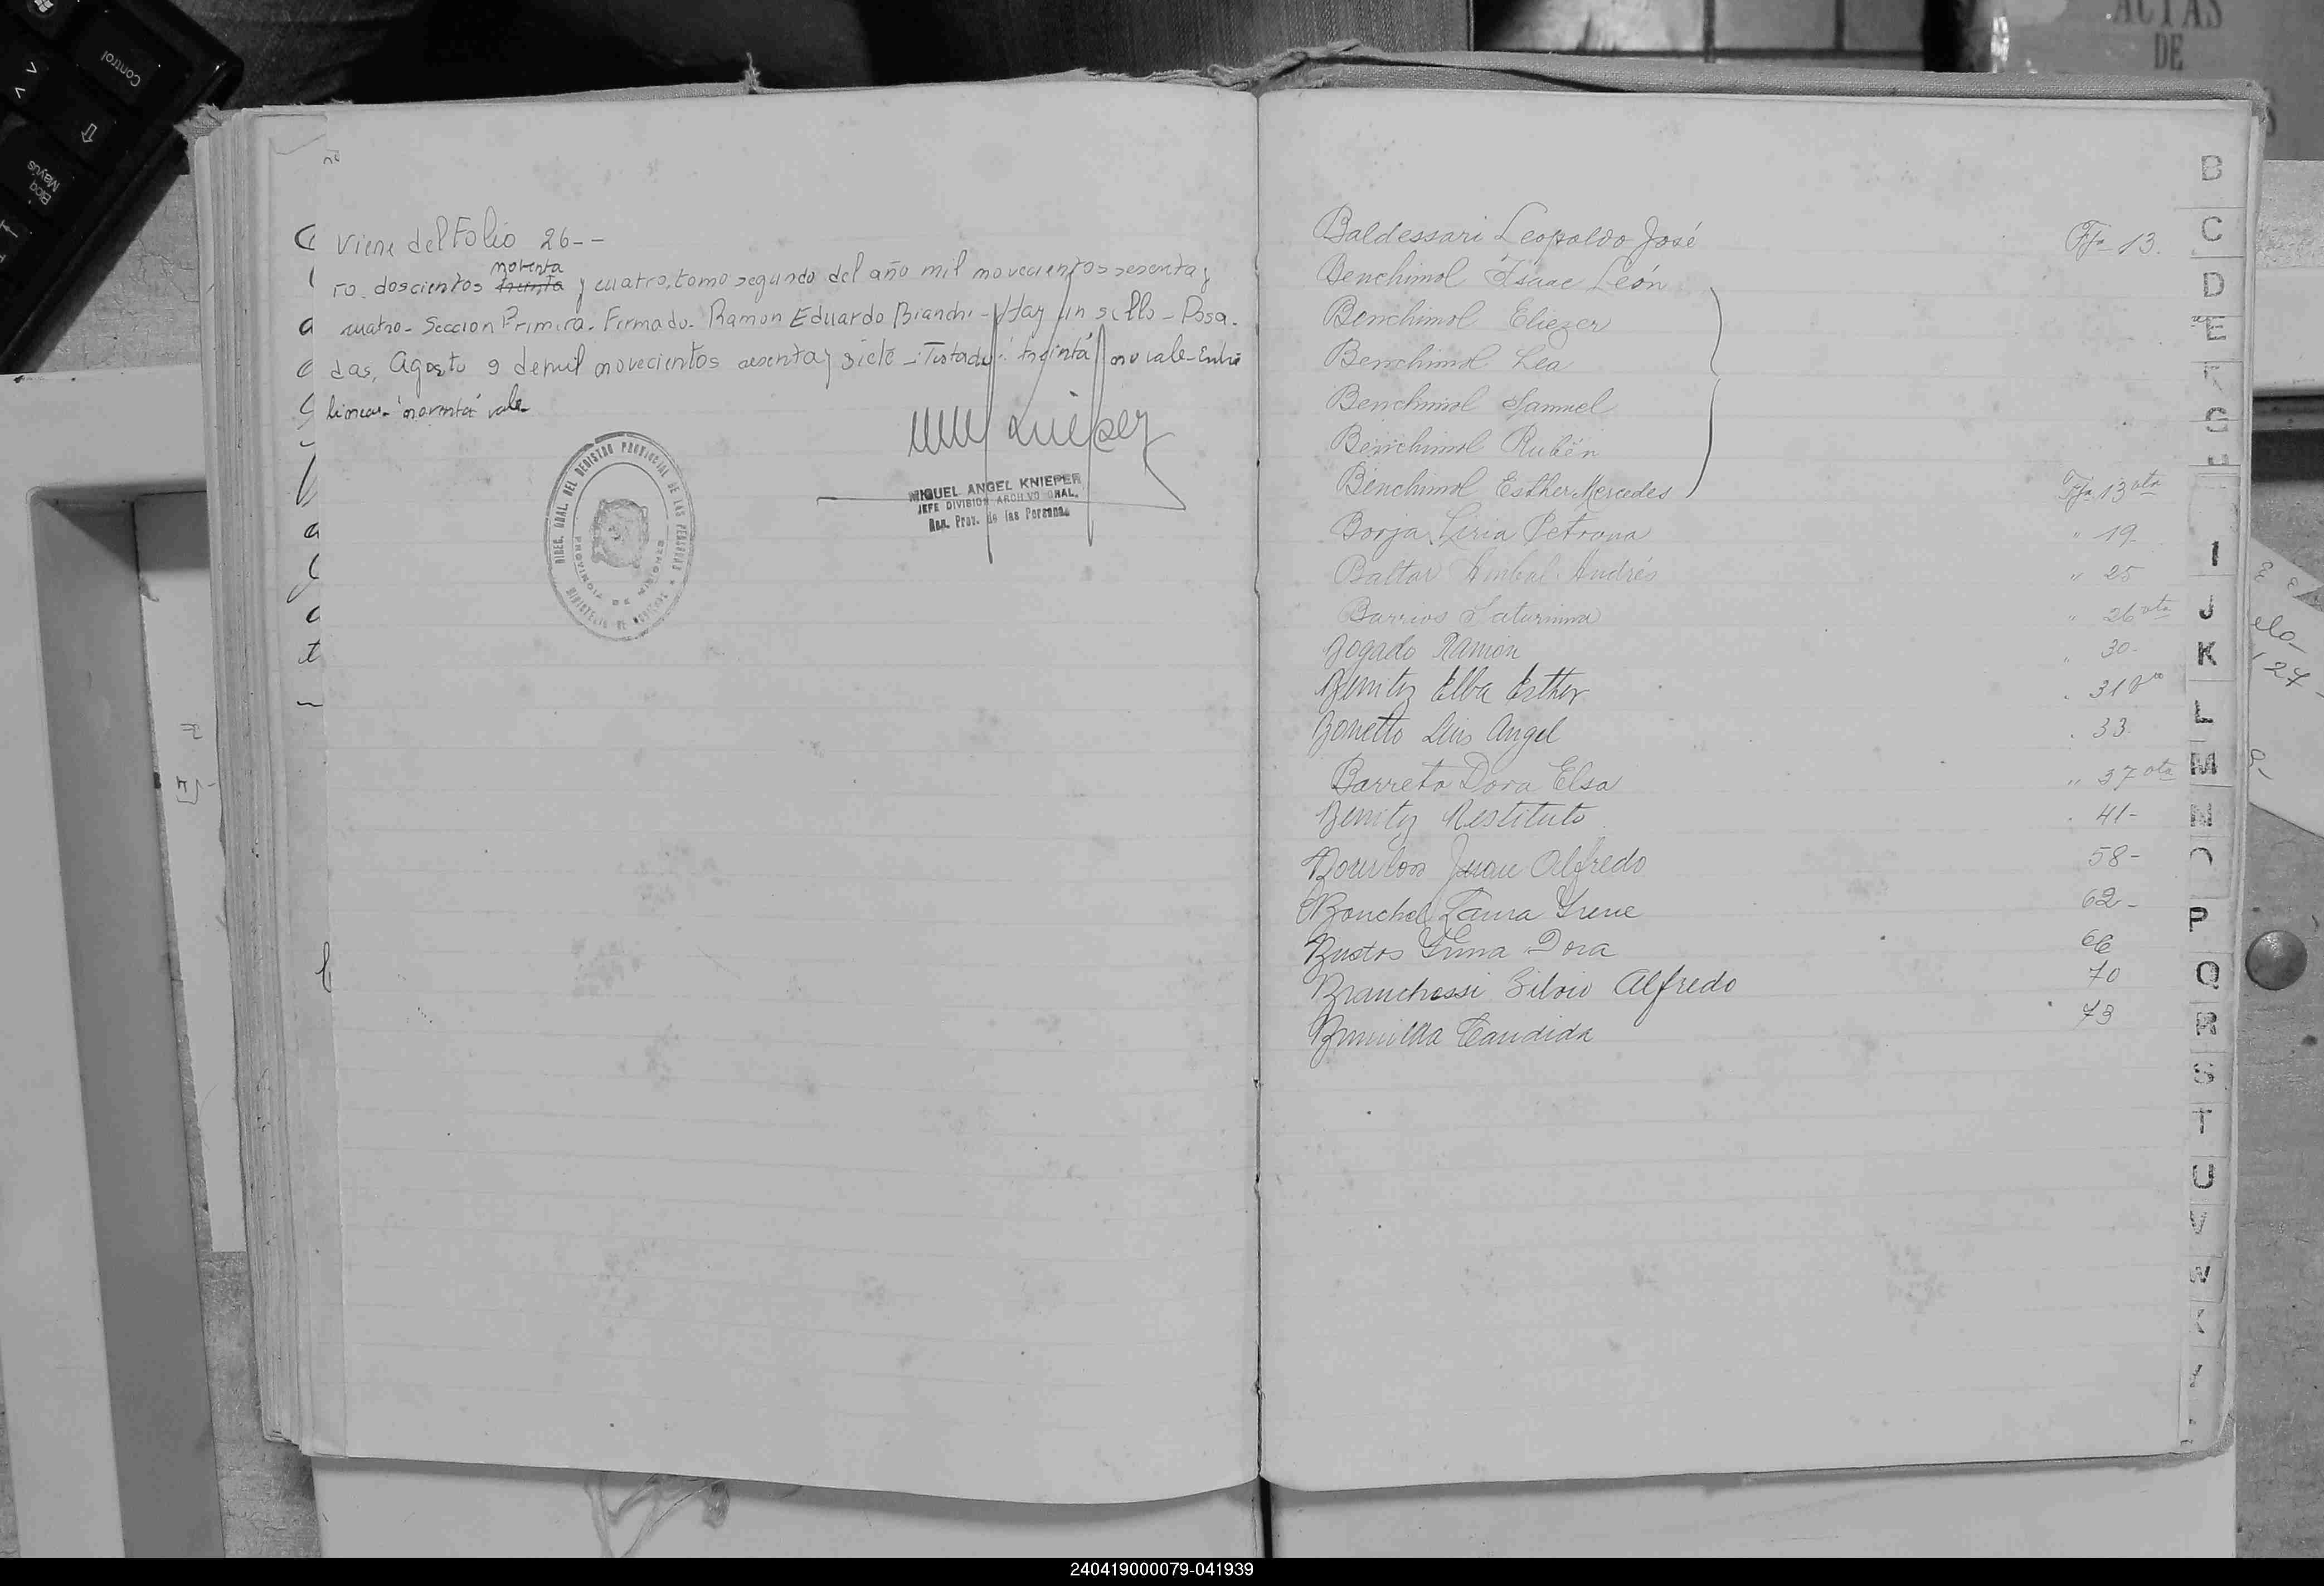 Viene del Folio 26--
ro. doscientos treinta noventa y cuatro, tomo segundo del año mil novecientos sesenta y
cuatro- Seccion Primera. Firmado. Ramon Eduardo Bianchi- Hay un sello- Posa-
das, Agosto 9 de mil novecientos sesenta y siete -: Testado: "treinta" no vale- Entre
lineas- "noventa" vale-
MIGUEL ANGEL KNIEPER
JEFE DIVISION ARCHIVO GRAL.
Reg. Prov. de las Personas
DIREC. GRAL. DEL REGISTRO PROVINCIAL DE LAS PERSONAS
PROVINCIA DE MISIONES
MINISTERIO DE GOBIERNO
Baldessari Leopoldo José 13.
Benchimol Isaac León
Benchimol Eliezer
Benchimol Lea
Benchimol Samuel
Benchimol Rubén
Benchimol Esther Mercedes 13 vta
Borja Liria Petrona " 19-
Baltar Anibal Andrés " 25
Barrios Saturnina " 26 vta
Bogado Ramón " 30-
Benitez Elba Esther . 31 vto
Bonetto Luis Angel . 33.
Barreto Dora Elsa " 37 vta
Benitez Restituto . 41-
Juan Alfredo 58-
Laura Irene 62-
Bustos Irma Dora 66
Branchessi Silvio Alfredo 70
Candida 73
B
C
D
E
F
G
H
I
J
K
L
M
N
O
P
Q
R
S
T
U
V
W
X
Y
Control
Bloq
Mayús
ACTAS
DE
240419000079-041939